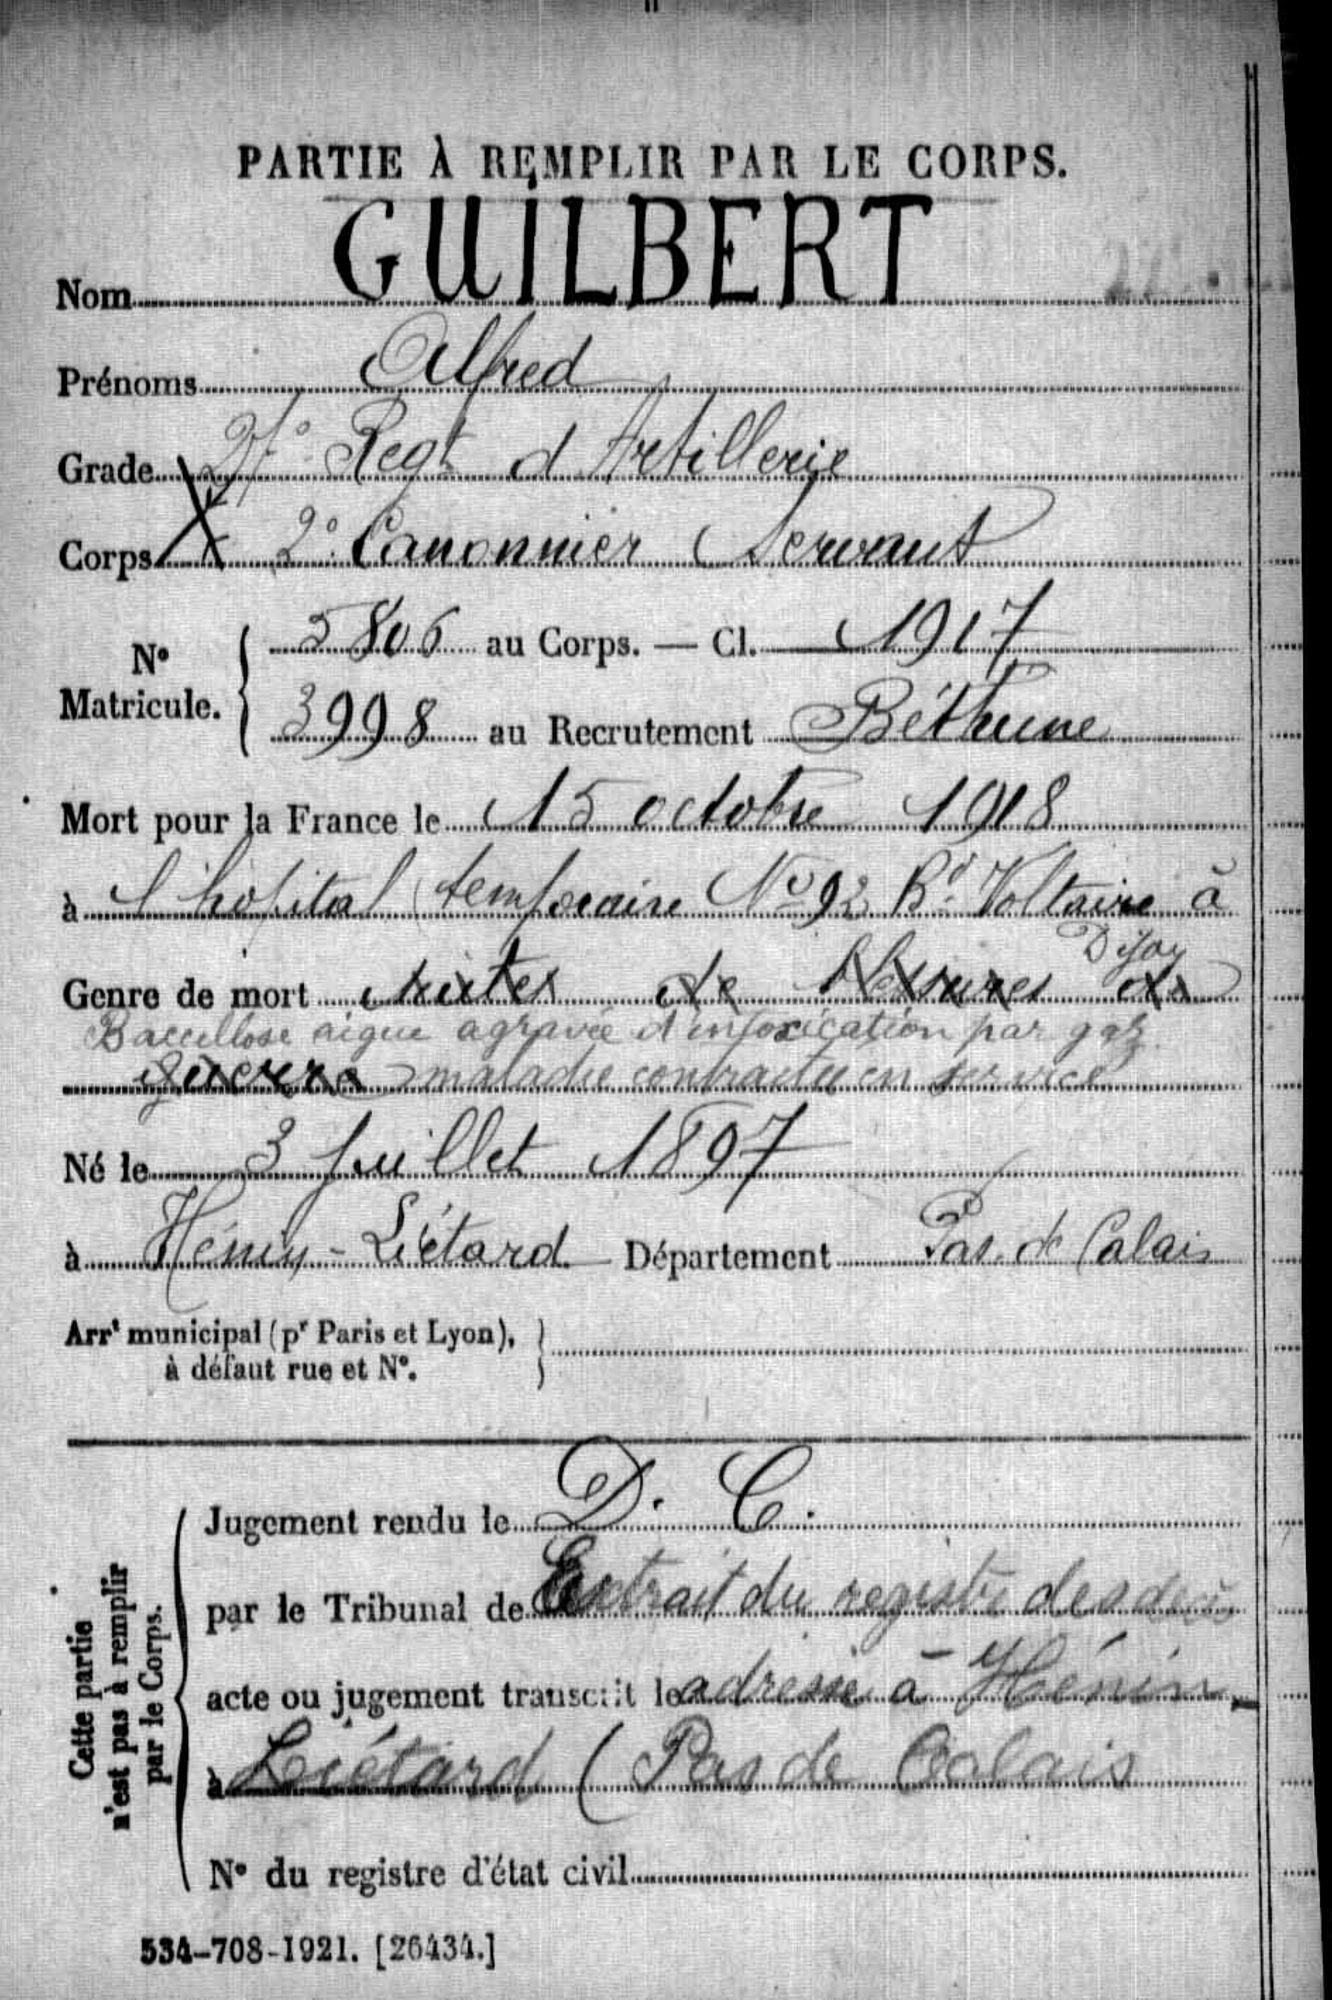 PARTIE À REMPLIR PAR LE CORPS.
Nom GUILBERT
Prénoms Alfred
Grade 27e Regt d'Artillerie
Corps 2e Canonnier Servant
N° Matricule. 5806 au Corps. — Cl. 1917
3998 au Recrutement Béthune
Mort pour la France le 15 octobre 1918
à l'hôpital temporaire No 92 Bd Voltaire à
Dijon
Genre de mort suites de blessures de
Baccellose aigue agravée d'intoxication par gaz
guerre maladie contractée en service
Né le 3 Juillet 1897
à Hénin-Liétard Département Pas de Calais
Arrt municipal (pr Paris et Lyon),
à défaut rue et N°.
Cette partie
n'est pas à remplir
par le Corps.
Jugement rendu le D. C.
par le Tribunal de Extrait du registre des décès
acte ou jugement transcrit le adressé à Hénin-
à Liétard (Pas de Calais
N° du registre d'état civil
534-708-1921. [26434.]